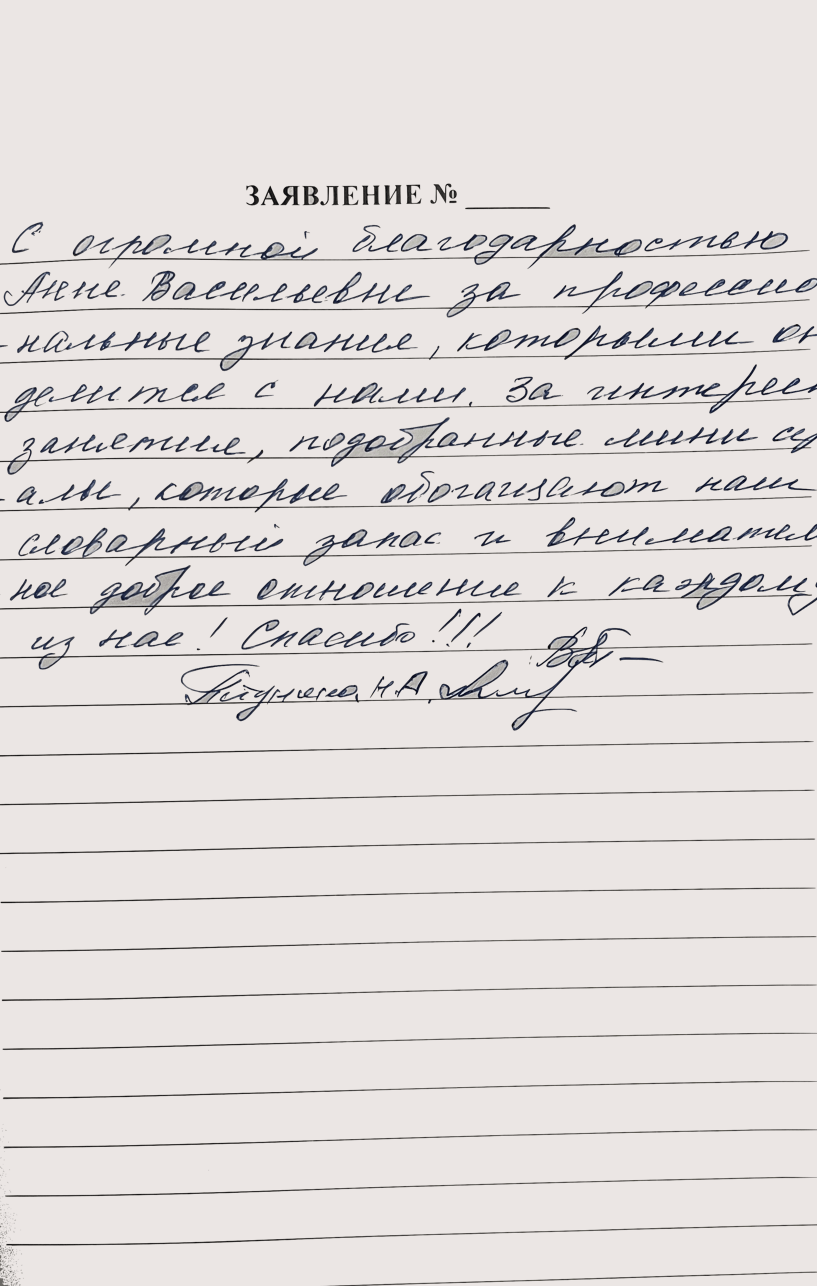 ЗАЯВЛЕНИЕ № ______
С огромной благодарностью
Анне Васильевне за профессио
-нальные знания, которыми он
делится с нами. За интересн
занятия, подобранные мини сер
-алы, которые обогащают наш
словарный запас и внимател
ное доброе отношение к каждому
из нас! Спасибо!!!
Н.А.